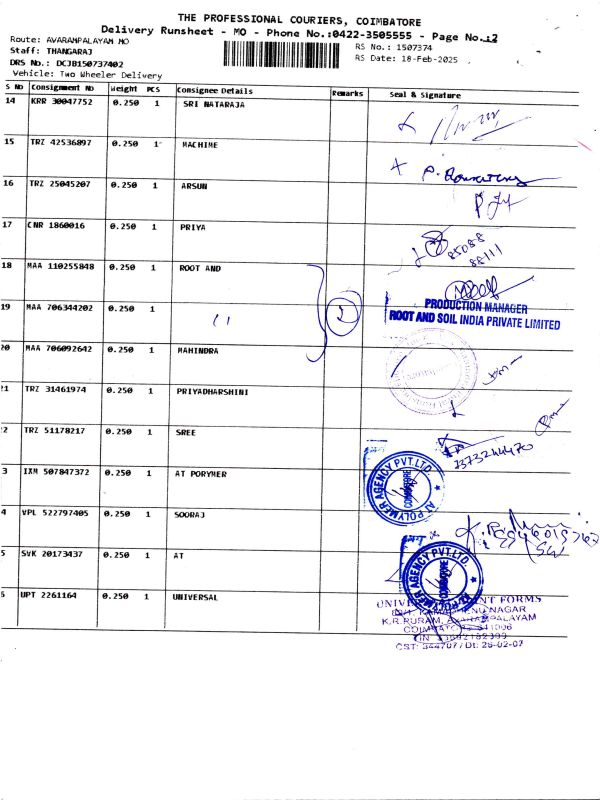 THE PROFESSIONAL COURIERS, COIMBATORE
Delivery Runsheet - MO - Phone No.:0422-3505555 - Page No.:2
Route: AVARAMPALAYAM MO
Staff: THANGARAJ
DRS No.: DCJB150737402
Vehicle: Two Wheeler Delivery
RS No.: 1507374
RS Date: 18-Feb-2025
S No Consignment No Weight PCS Consignee Details Remarks Seal & Signature
14 KRR 30047752 0.250 1 SRI NATARAJA
15 TRZ 42536897 0.250 1 MACHIME
16 TRZ 25045207 0.250 1 ARSUN
17 CNR 1860016 0.250 1 PRIYA
85088
88111
18 MAA 110255848 0.250 1 ROOT AND
PRODUCTION MANAGER
ROOT AND SOIL INDIA PRIVATE LIMITED
19 MAA 706344202 0.250 1 11 2
20 MAA 706092642 0.250 1 MAHINDRA
21 TRZ 31461974 0.250 1 PRIYADHARSHINI
2 TRZ 51178217 0.250 1 SREE
7373244470
3 IXM 507847372 0.250 1 AT PORYMER
AT POLYMER AGENCY PVT.LTD.
COIMBATORE
4 VPL 522797405 0.250 1 SOORAJ
5 SVK 20173437 0.250 1 AT
POLYMER AGENCY PVT.LTD.
COIMBATORE
6 UPT 2261164 0.250 1 UNIVERSAL
FORMS
NAGAR
K.R.PURAM, AVARAMPALAYAM
COIMBATORE 641006
CST: 344707 / Dt: 28-02-07